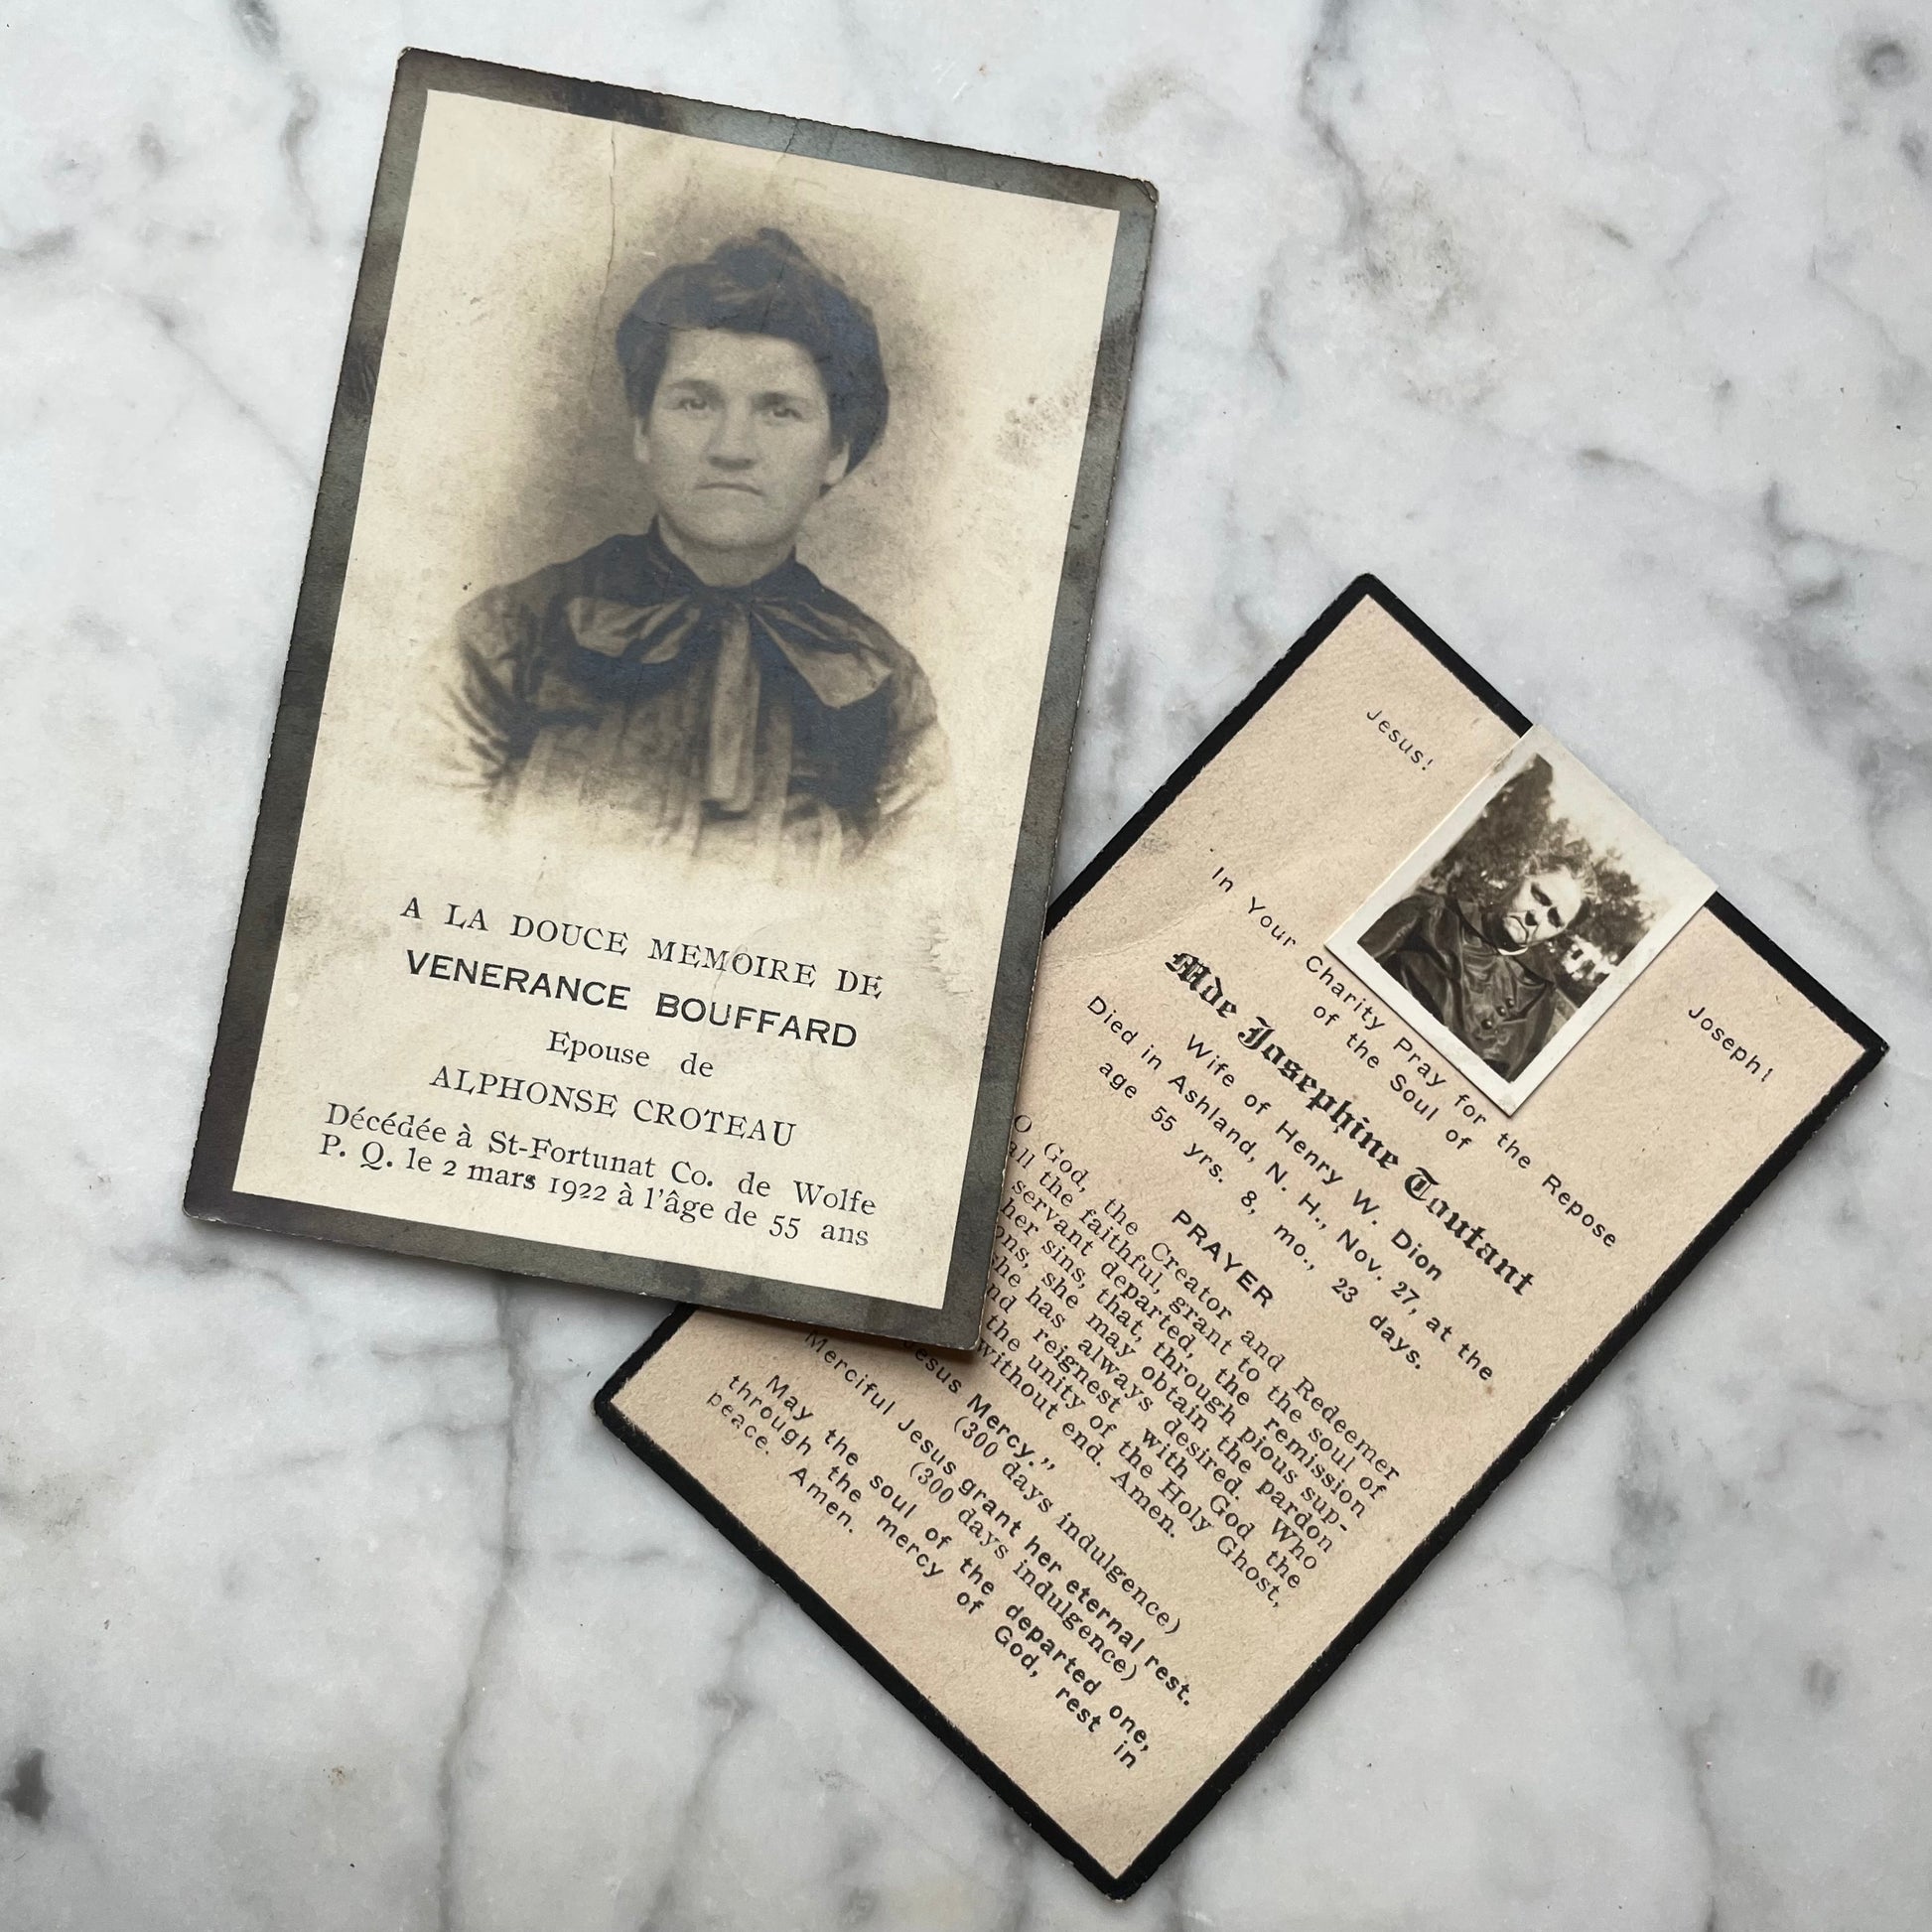 A LA DOUCE MEMOIRE DE
VENERANCE BOUFFARD
Epouse de
ALPHONSE CROTEAU
Décédée à St-Fortunat Co. de Wolfe
P. Q. le 2 mars 1922 à l'âge de 55 ans
Jesus!
Joseph!
In Your Charity Pray for the Repose
of the Soul of
Mde Josephine Toutant
Wife of Henry W. Dion
Died in Ashland, N. H., Nov. 27, at the
age 55 yrs. 8, mo., 23 days.
PRAYER
O God, the Creator and Redeemer
all the faithful, grant to the soul of
servant departed, the remission
her sins, that, through pious sup-
ons, she may obtain the pardon
she has always desired. Who
nd reignest with God the
the unity of the Holy Ghost,
without end. Amen.
Jesus Mercy."
(300 days indulgence)
Merciful Jesus grant her eternal rest.
(300 days indulgence)
May the soul of the departed one,
through the mercy of God, rest in
peace. Amen.